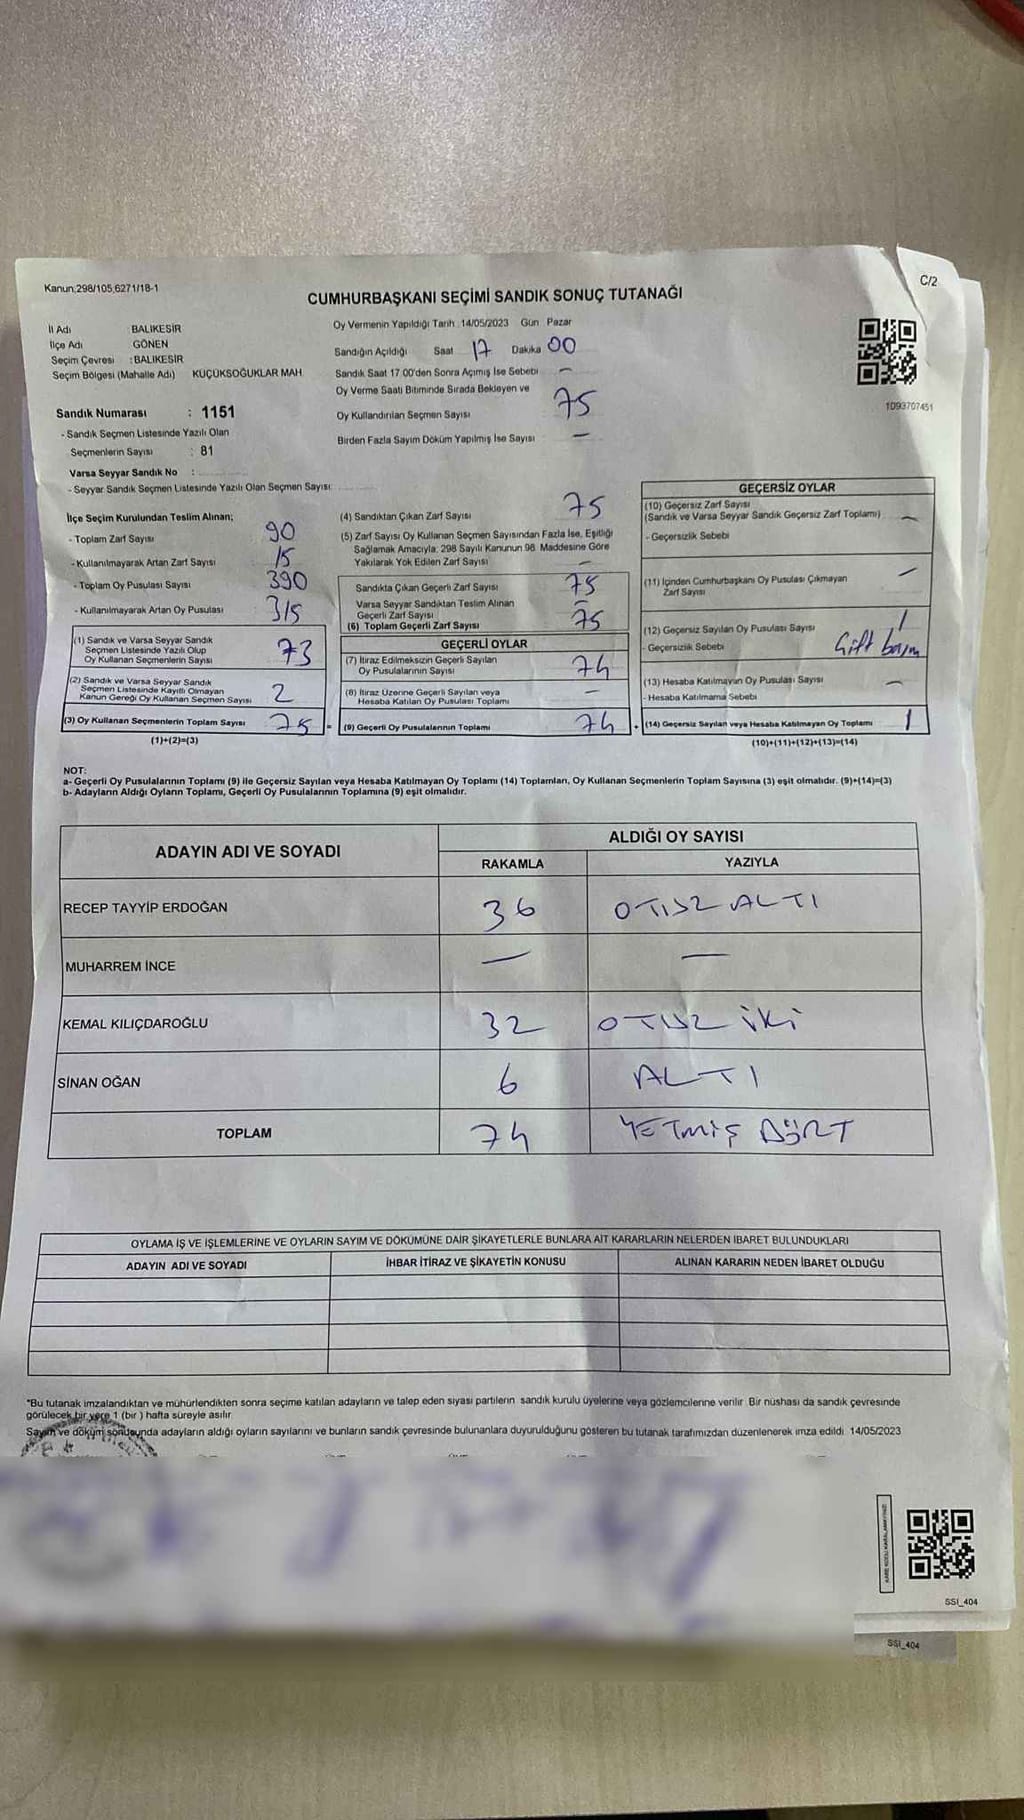 Kanun;298/105,6271/18-1
C/2
CUMHURBAŞKANI SEÇİMİ SANDIK SONUÇ TUTANAĞI
İl Adı BALIKESİR
İlçe Adı GÖNEN
Seçim Çevresi : BALIKESİR
Seçim Bölgesi (Mahalle Adı) KÜÇÜKSOĞUKLAR MAH.
Sandık Numarası : 1151
- Sandık Seçmen Listesinde Yazılı Olan
Seçmenlerin Sayısı : 81
Varsa Seyyar Sandık No :
- Seyyar Sandık Seçmen Listesinde Yazılı Olan Seçmen Sayısı:
Oy Vermenin Yapıldığı Tarih : 14/05/2023 Gün Pazar
Sandığın Açıldığı Saat 17 Dakika 00
Sandık Saat 17.00'den Sonra Açımış İse Sebebi —
Oy Verme Saati Bitiminde Sırada Bekleyen ve
Oy Kullandırılan Seçmen Sayısı 75
Birden Fazla Sayım Döküm Yapılmış İse Sayısı —
1093707451
İlçe Seçim Kurulundan Teslim Alınan;
- Toplam Zarf Sayısı 90
- Kullanılmayarak Artan Zarf Sayısı 15
- Toplam Oy Pusulası Sayısı 390
- Kullanılmayarak Artan Oy Pusulası 315
(1) Sandık ve Varsa Seyyar Sandık
Seçmen Listesinde Yazılı Olup
Oy Kullanan Seçmenlerin Sayısı 73
(2) Sandık ve Varsa Seyyar Sandık
Seçmen Listesinde Kayıtlı Olmayan
Kanun Gereği Oy Kullanan Seçmen Sayısı 2
(3) Oy Kullanan Seçmenlerin Toplam Sayısı 75 =
(1)+(2)=(3)
(4) Sandıktan Çıkan Zarf Sayısı 75
(5) Zarf Sayısı Oy Kullanan Seçmen Sayısından Fazla İse, Eşitliği
Sağlamak Amacıyla; 298 Sayılı Kanunun 98. Maddesine Göre
Yakılarak Yok Edilen Zarf Sayısı —
Sandıkta Çıkan Geçerli Zarf Sayısı 75
Varsa Seyyar Sandıktan Teslim Alınan
Geçerli Zarf Sayısı —
(6) Toplam Geçerli Zarf Sayısı 75
GEÇERLİ OYLAR
(7) İtiraz Edilmeksizin Geçerli Sayılan
Oy Pusulalarının Sayısı 74
(8) İtiraz Üzerine Geçerli Sayılan veya
Hesaba Katılan Oy Pusulası Toplamı —
(9) Geçerli Oy Pusulalarının Toplamı 74 +
GEÇERSİZ OYLAR
(10) Geçersiz Zarf Sayısı
(Sandık ve Varsa Seyyar Sandık Geçersiz Zarf Toplamı) —
- Geçersizlik Sebebi
(11) İçinden Cumhurbaşkanı Oy Pusulası Çıkmayan
Zarf Sayısı —
(12) Geçersiz Sayılan Oy Pusulası Sayısı 1
- Geçersizlik Sebebi Çift basım
(13) Hesaba Katılmayan Oy Pusulası Sayısı —
- Hesaba Katılmama Sebebi
(14) Geçersiz Sayılan veya Hesaba Katılmayan Oy Toplamı 1
(10)+(11)+(12)+(13)=(14)
NOT:
a- Geçerli Oy Pusulalarının Toplamı (9) ile Geçersiz Sayılan veya Hesaba Katılmayan Oy Toplamı (14) Toplamları, Oy Kullanan Seçmenlerin Toplam Sayısına (3) eşit olmalıdır. (9)+(14)=(3)
b- Adayların Aldığı Oyların Toplamı, Geçerli Oy Pusulalarının Toplamına (9) eşit olmalıdır.
ADAYIN ADI VE SOYADI ALDIĞI OY SAYISI
RAKAMLA YAZIYLA
RECEP TAYYİP ERDOĞAN 36 OTUZ ALTI
MUHARREM İNCE — —
KEMAL KILIÇDAROĞLU 32 OTUZ İKİ
SİNAN OĞAN 6 ALTI
TOPLAM 74 YETMİŞ DÖRT
OYLAMA İŞ VE İŞLEMLERİNE VE OYLARIN SAYIM VE DÖKÜMÜNE DAİR ŞİKAYETLERLE BUNLARA AİT KARARLARIN NELERDEN İBARET BULUNDUKLARI
ADAYIN ADI VE SOYADI İHBAR İTİRAZ VE ŞİKAYETİN KONUSU ALINAN KARARIN NEDEN İBARET OLDUĞU
*Bu tutanak imzalandıktan ve mühürlendikten sonra seçime katılan adayların ve talep eden siyasi partilerin sandık kurulu üyelerine veya gözlemcilerine verilir. Bir nüshası da sandık çevresinde
görülecek bir yere 1 (bir ) hafta süreyle asılır.
Sayım ve döküm sonucunda adayların aldığı oyların sayılarını ve bunların sandık çevresinde bulunanlara duyurulduğunu gösteren bu tutanak tarafımızdan düzenlenerek imza edildi. 14/05/2023
SSI_404
SSI_404